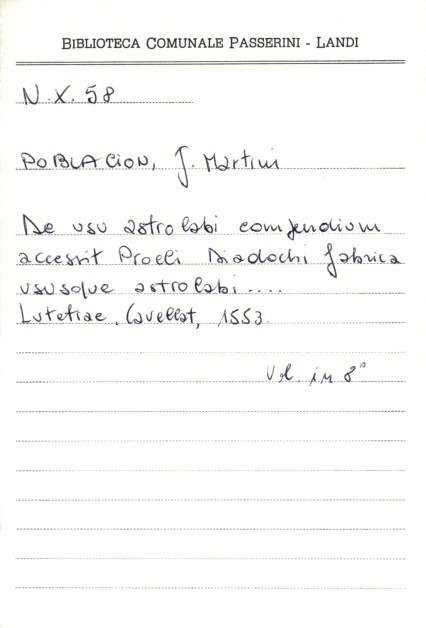 BIBLIOTECA COMUNALE PASSERINI - LANDI
N.X. 58
POBLACION, J. Martini
De usu astrolabi compendium
accessit Procli Diadochi fabrica
ususque astrolabi....
Lutetiae, Cavellat, 1553
Vol. in 8°